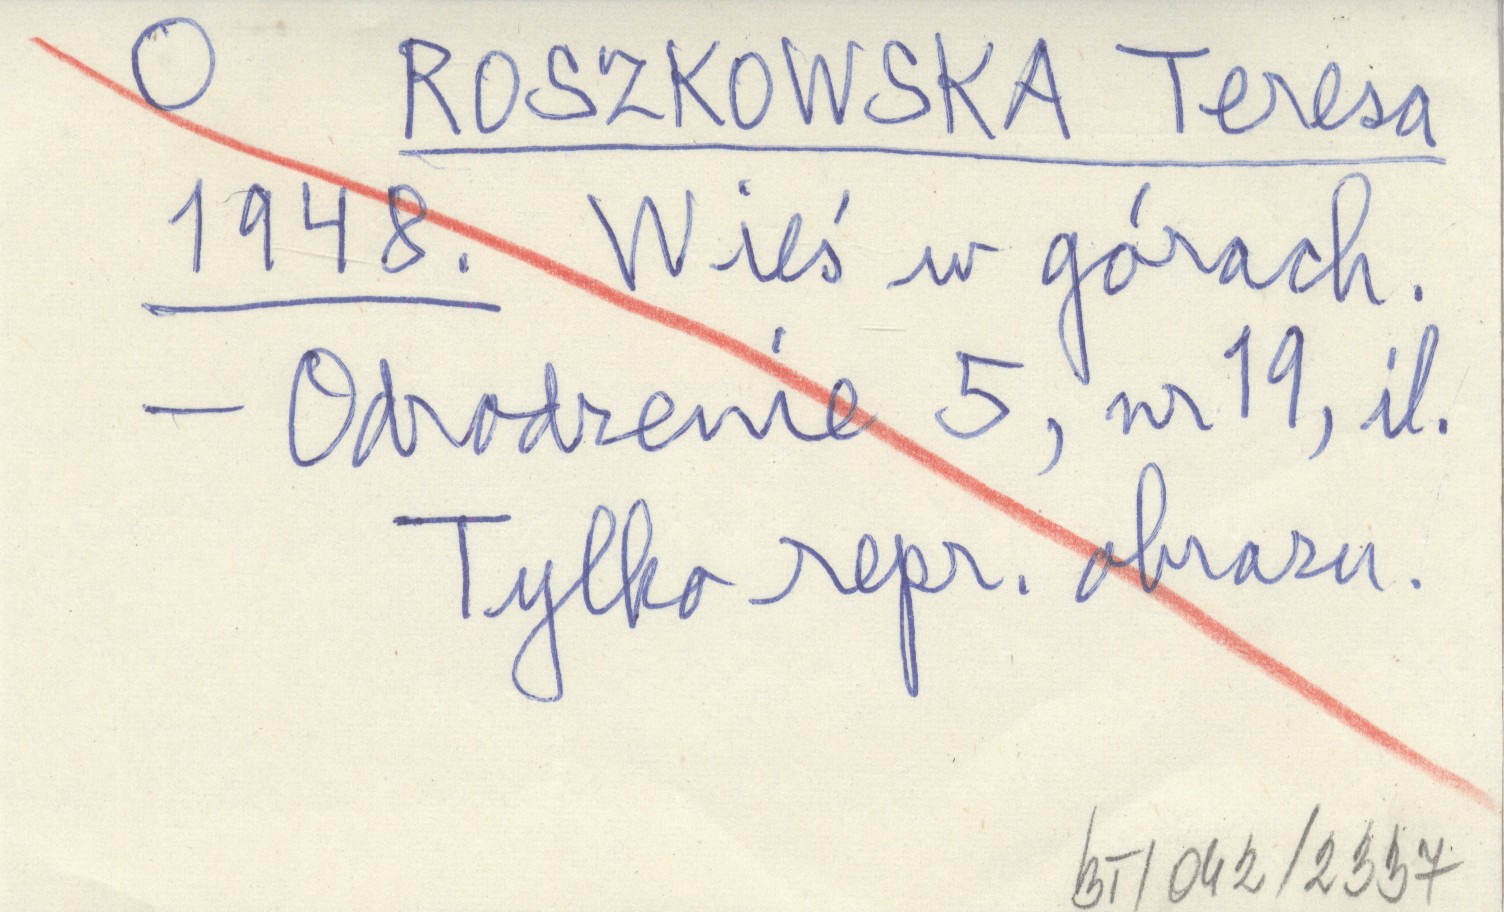 O ROSZKOWSKA Teresa
1948. Wieś w górach.
— Odrodzenie 5, nr 19, il.
Tylko repr. obrazu.
BT/042/2337